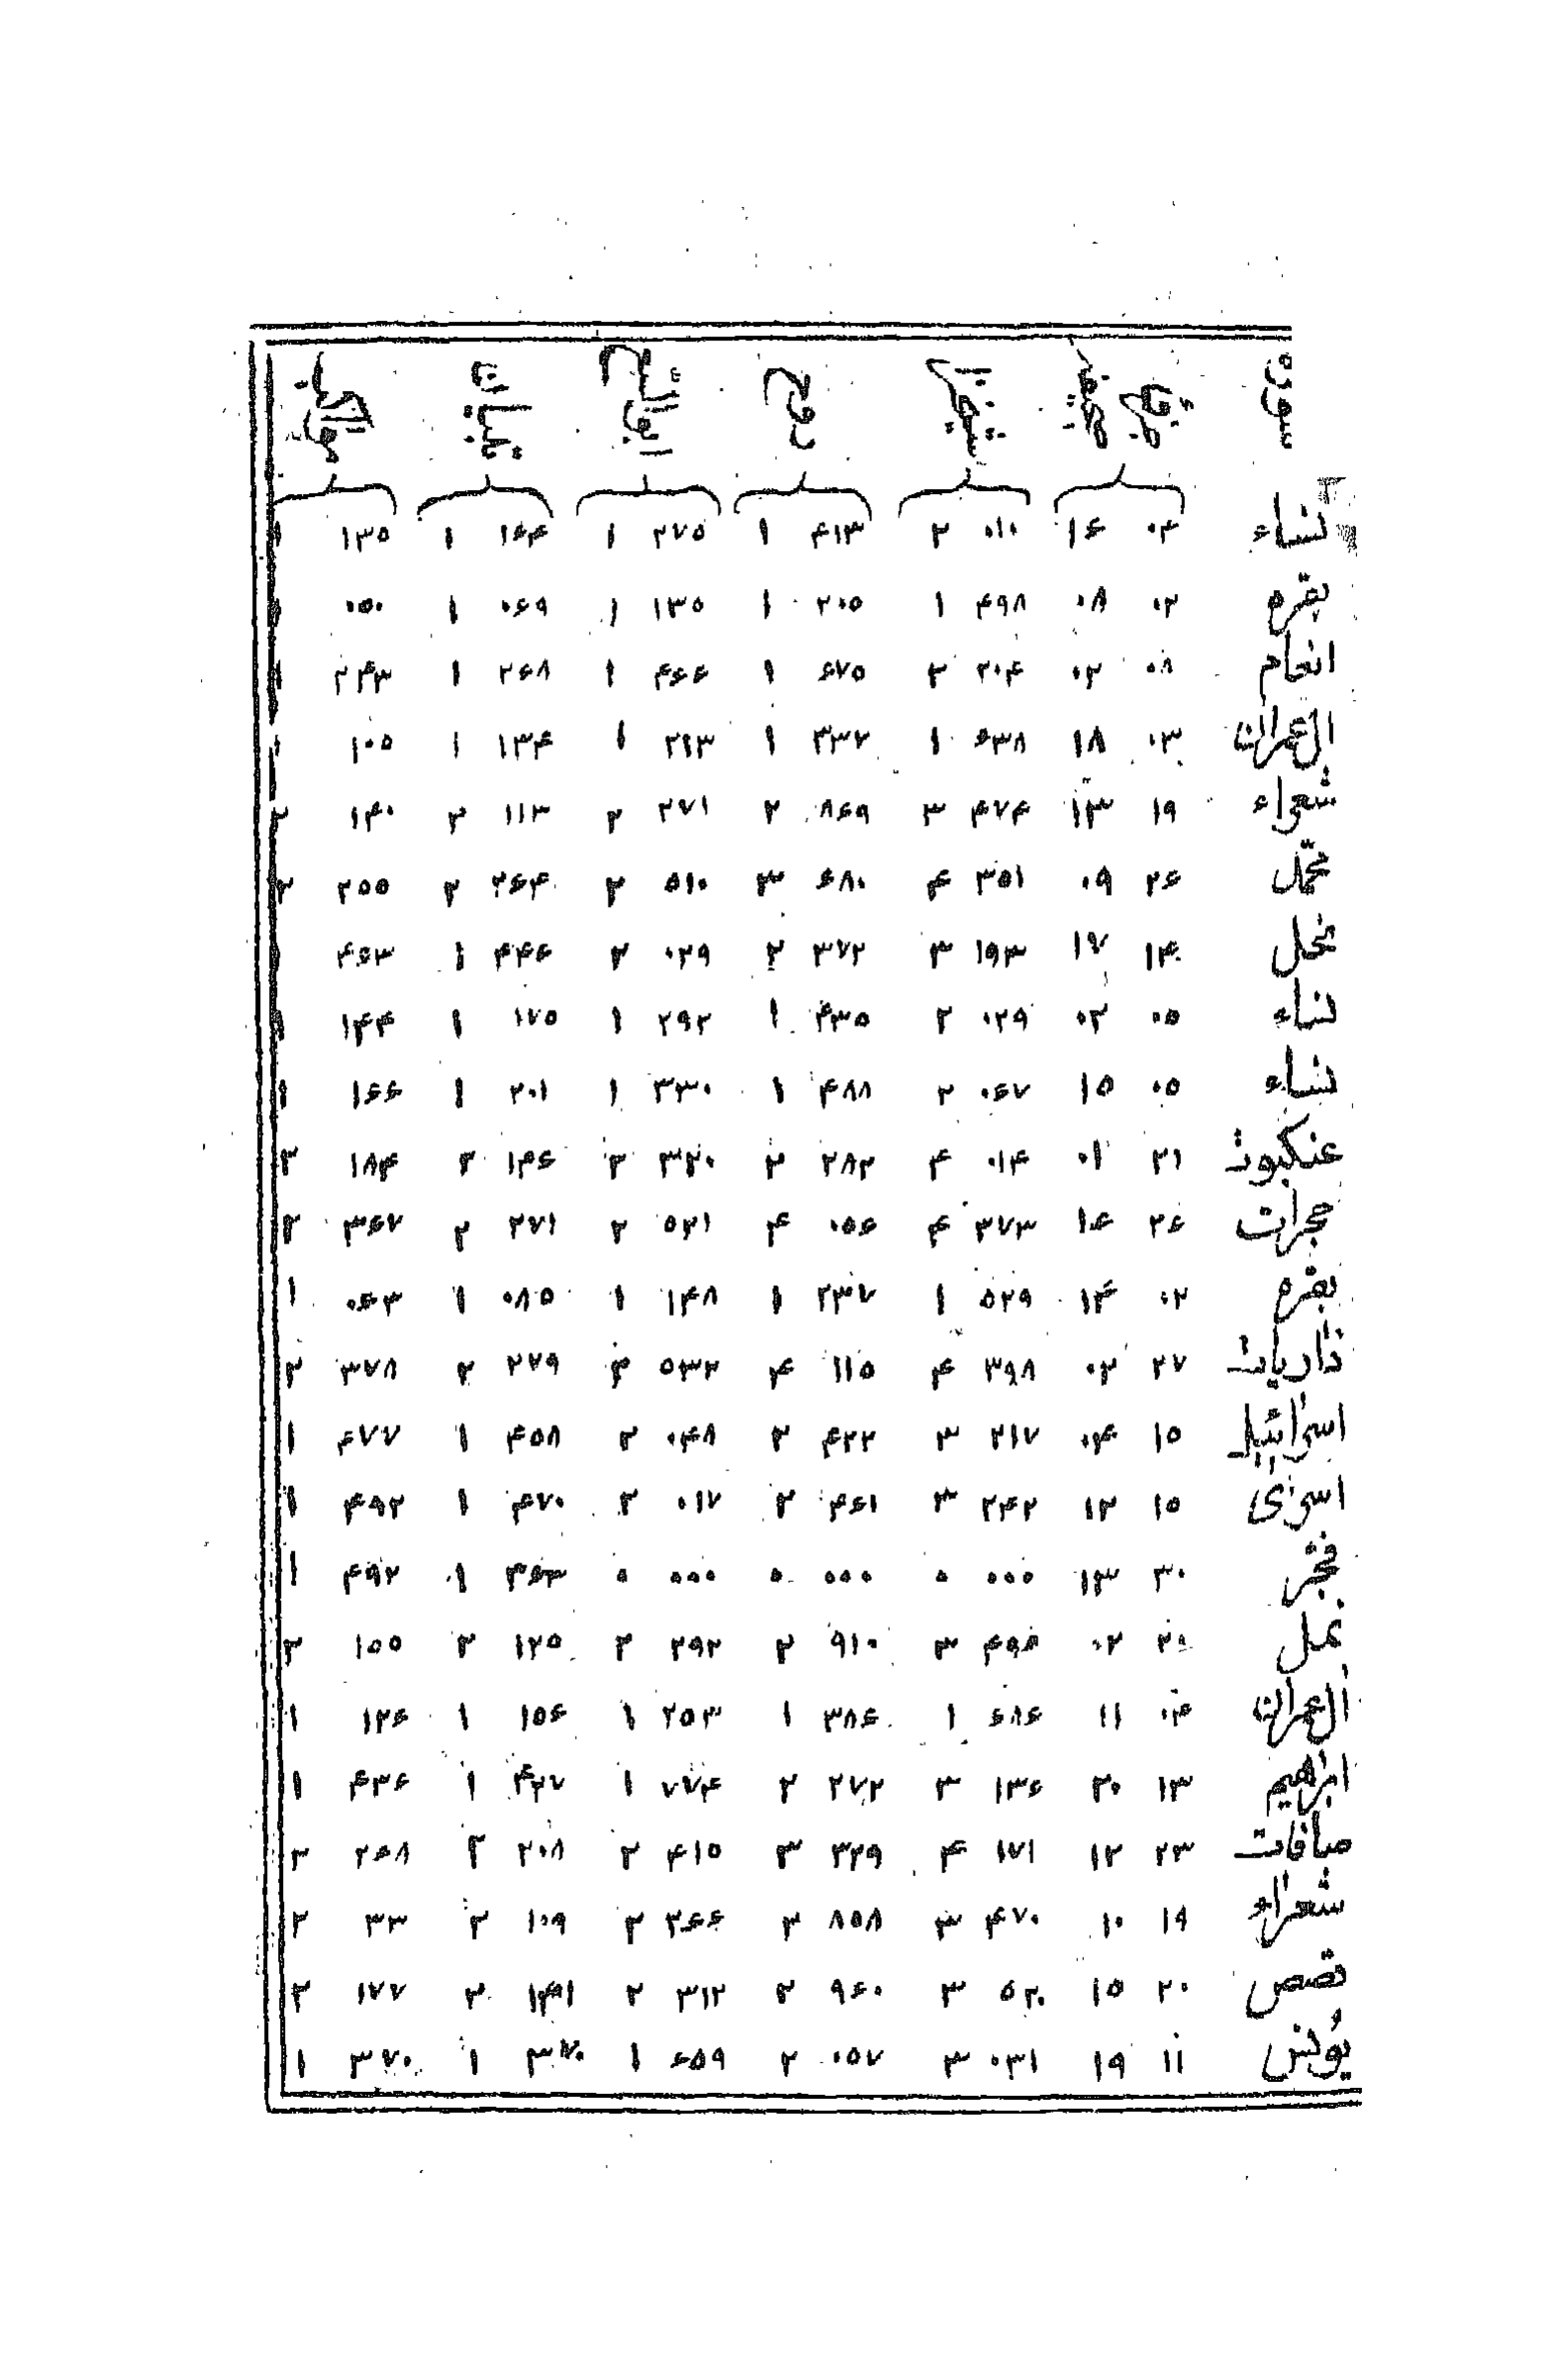 سوره
نساء ۰۴ ۱۶ ۰۱۰ ۲ ۴۱۳ ۱ ۲۷۵ ۱ ۱۶۴ ۱ ۱۳۵
بقره ۰۲ ۰۸ ۴۹۸ ۱ ۲۰۵ ۱ ۱۳۵ ۱ ۰۶۹ ۱ ۰۵۰
انعام ۰۸ ۰۲ ۲۰۴ ۲ ۶۷۵ ۱ ۴۶۶ ۱ ۲۶۸ ۱ ۲۴۳ ۱
ال عمران ۰۳ ۱۸ ۶۳۸ ۱ ۳۳۷ ۱ ۲۱۳ ۱ ۱۳۴ ۱ ۱۰۵
شعراء ۱۹ ۱۳ ۴۷۴ ۳ ۸۶۹ ۲ ۲۷۱ ۲ ۱۱۳ ۲ ۱۴۰ ۲
محمّل ۲۶ ۰۹ ۳۵۱ ۴ ۶۸۰ ۳ ۵۱۰ ۲ ۲۶۴ ۲ ۲۵۵ ۲
نحل ۱۴ ۱۷ ۱۹۳ ۳ ۳۷۲ ۲ ۰۲۹ ۲ ۴۴۶ ۱ ۴۵۳
نساء ۰۵ ۰۲ ۰۲۹ ۲ ۴۳۵ ۱ ۲۹۲ ۱ ۱۷۵ ۱ ۱۴۴
نساء ۰۵ ۱۵ ۰۶۷ ۲ ۴۸۸ ۱ ۳۳۰ ۱ ۲۰۱ ۱ ۱۶۶ ۱
عنکبوت ۲۱ ۰۱ ۰۱۴ ۴ ۲۸۲ ۲ ۳۲۰ ۲ ۱۴۶ ۲ ۱۸۴ ۲
حجرات ۲۶ ۱۶ ۳۷۳ ۴ ۰۵۶ ۴ ۵۲۱ ۲ ۲۷۱ ۲ ۳۶۷ ۲
بقره ۰۲ ۱۴ ۵۲۹ ۱ ۲۳۷ ۱ ۱۴۸ ۱ ۰۸۵ ۱ ۰۶۳ ۱
ذاریات ۲۷ ۰۲ ۳۹۸ ۴ ۱۱۵ ۴ ۵۳۲ ۲ ۲۷۹ ۲ ۳۷۸ ۲
اسرائیل ۱۵ ۰۴ ۲۱۷ ۳ ۴۲۲ ۲ ۰۴۸ ۲ ۴۵۸ ۱ ۴۷۷ ۱
اسری ۱۵ ۱۲ ۲۴۲ ۳ ۴۶۱ ۲ ۰۱۷ ۲ ۴۷۰ ۱ ۴۹۲ ۱
فجر ۳۰ ۱۳ ۰۰۰ ۰ ۰۰۰ ۰ ۰۰۰ ۰ ۳۶۳ ۱ ۴۹۲ ۱
نمل ۰۲ ۳ ۹۱۰ ۲ ۲۹۲ ۲ ۱۲۵ ۲ ۱۵۵ ۲
ال عمران ۰۴ ۱۱ ۶۸۶ ۱ ۳۸۶ ۱ ۲۵۳ ۱ ۱۵۶ ۱ ۱۲۶ ۱
ابراهیم ۱۳ ۲۰ ۱۳۶ ۳ ۲۷۲ ۲ ۷۷۴ ۱ ۴۲۷ ۱ ۴۳۶ ۱
صافات ۲۳ ۱۲ ۱۷۱ ۴ ۳۲۹ ۳ ۴۱۵ ۲ ۲۰۸ ۲ ۲۶۸ ۲
شعراء ۱۹ ۱۰ ۴۷۰ ۳ ۸۵۸ ۲ ۲۶۶ ۲ ۱۰۹ ۲ ۳۳ ۲
قصص ۲۰ ۱۵ ۵۲۰ ۳ ۹۶۰ ۲ ۳۱۲ ۲ ۱۴۱ ۲ ۱۷۷ ۲
یونس ۱۱ ۱۹ ۰۳۱ ۳ ۰۵۷ ۲ ۶۵۹ ۱ ۳۷۰ ۱ ۳۷۰ ۱